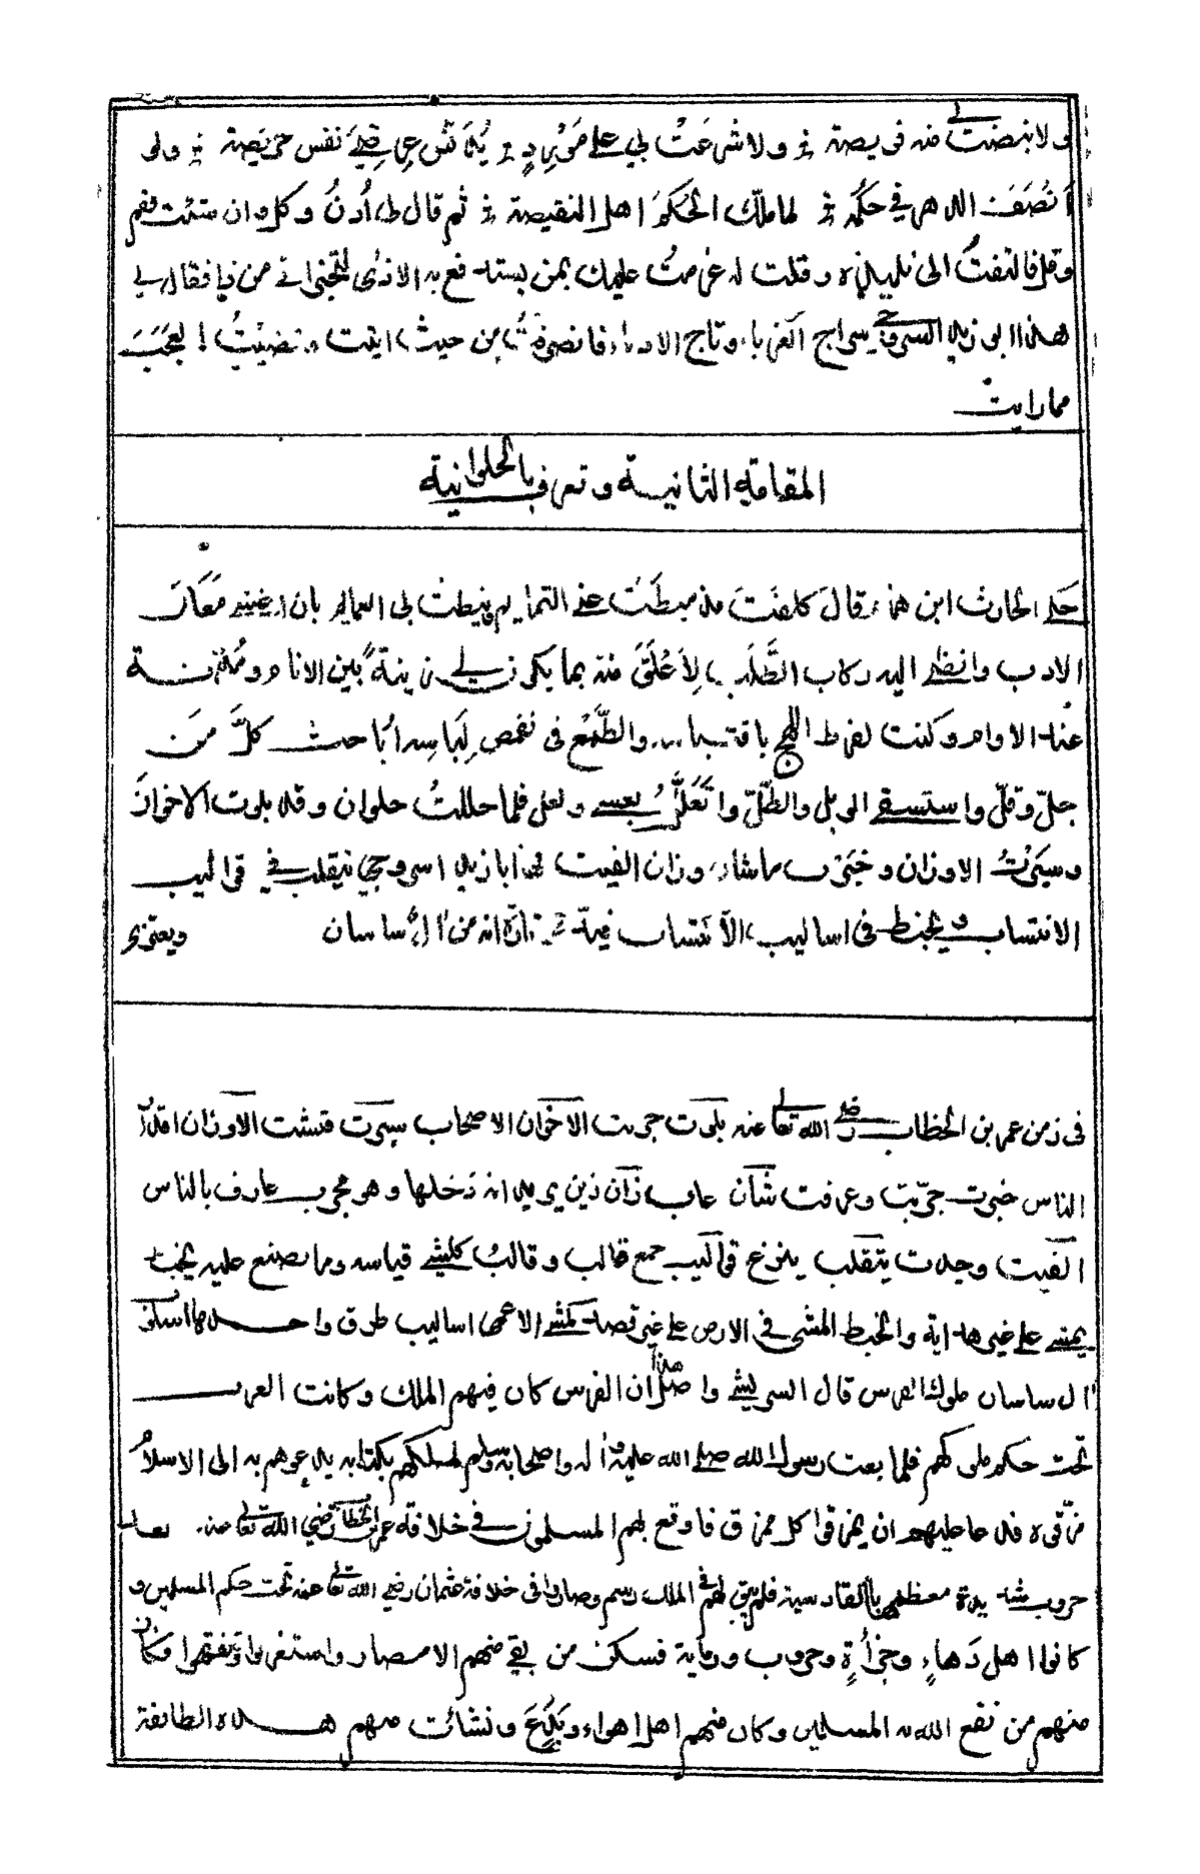 ولا نبضت لي منه فريصة ولا شرعت بي على مورد يدنس عرضي نفس حريصة ولو
انصف الدهر في حكمه لما ملك الحكم اهل النقيصة ثم قال لي ادن وكل وان شئت فقم
وقل فالتفت الى تلميذه وقلت له عزمت عليك بمن يستدفع به الاذى لتخبرني من ذا فقال لي
هذا ابو زيد السروجي سراج الغرباء وتاج الادباء فانصرفت من حيث اتيت وقضيت العجب
مما رايت
المقامة الثانية وتعرف بالحلوانية
حكى الحارث ابن همام قال كلفت مذ ميطت عني التمايم ونيطت بي العمايم بان اغشى معان
الادب وانضي اليه ركاب الطلب لاعلق منه بما يكون لي زينة بين الانام ومزنة
عند الاوام وكنت لفرط اللهج باقتباسه والطمع في تقمص لباسه اباحث كل من
جل وقل واستسقي الوبل والطل واتعلل بعسى ولعل فلما حللت حلوان وقد بلوت الاخوان
وسبرت الاوزان وخبرت ما شان وزان الفيت بها ابا زيد السروجي يتقلب في قواليب
الانتساب ويخبط في اساليب الاكتساب فيدعي تارة انه من ال ساسان ويعتزي
في زمن عمر بن الخطاب رضي الله تعالى عنه بلوت جربت الاخوان الاصحاب سبرت فتشت الاوزان اقدار
الناس خبرت جربت وعرفت شان عاب زان زين يريد انه دخلها وهو مجرب عارف بالناس
الفيت وجدت يتقلب ينزع قواليب جمع قالب وقالب كل شي قياسه وما يصنع عليه يخبط
يمشي على غير هداية والخبط المشي في الارض على غير قصد كمشي الاعمى اساليب طرق واحدها اسلوب
ال ساسان ملوك الفرس قال الشريشي واصل هذا ان الفرس كان فيهم الملك وكانت العرب
تحت حكم ملوكهم فلما بعث رسول الله صلى الله عليه واله واصحابه وسلم لملكهم بكتابه يدعوهم به الى الاسلام
مزقوه فدعا عليهم ان يمزقوا كل ممزق فاوقع بهم المسلمون في خلافة عمر بن الخطاب رضي الله تعالى عنه بعد
حروب شديدة معظمها بالقادسية فلم يبق لهم في الملك رسم وصاروا في خلافة عثمان رضي الله تعالى عنه تحت حكم المسلمين و
كانوا اهل دهاء وجرأة وحروب ورماية فسكن من بقي منهم الامصار واستعربوا وتفقهوا فكان
منهم من نفع الله به المسلمين وكان منهم اهل اهواء وبدع ونشات منهم هذه الطائفة